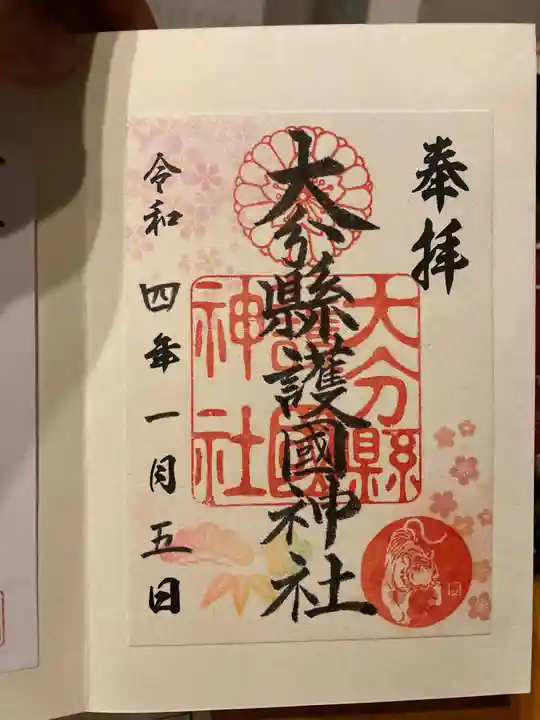 奉拝
大分縣護國神社
大分縣
護國
神社
令和四年一月五日